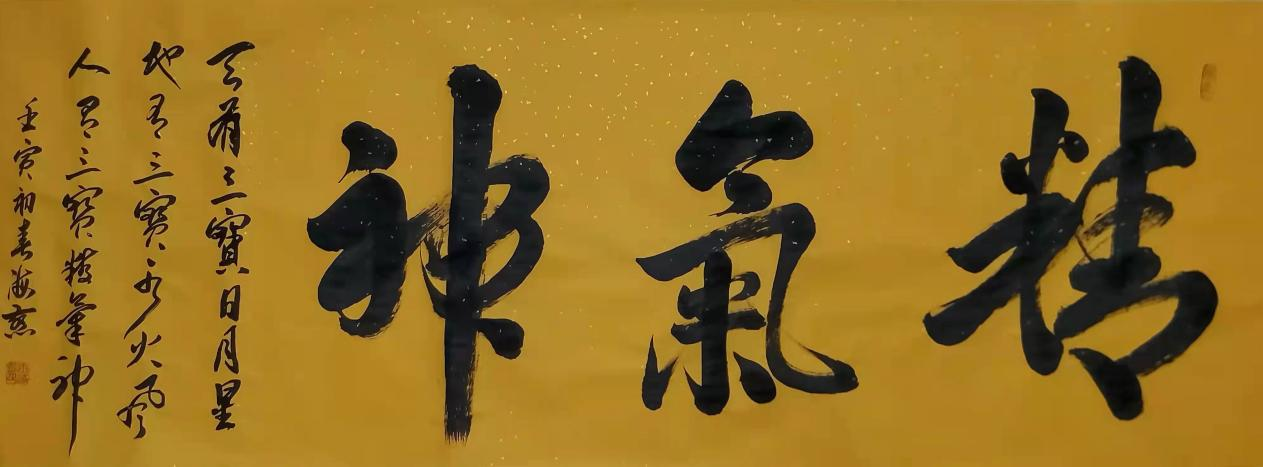 精氣神
天有三寶日月星
地有三寶水火風
人有三寶精氣神
壬寅初春海慈